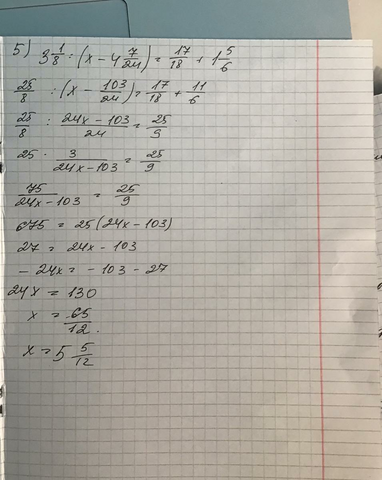 5) 3 1/8 : (x - 4 7/24) = 17/18 + 1 5/6
25/8 : (x - 103/24) = 17/18 + 11/6
25/8 : 24x - 103/24 = 25/9
25 · 3/24x - 103 = 25/9
75/24x - 103 = 25/9
675 = 25(24x - 103)
27 = 24x - 103
- 24x = - 103 - 27
24x = 130
x = 65/12.
x = 5 5/12